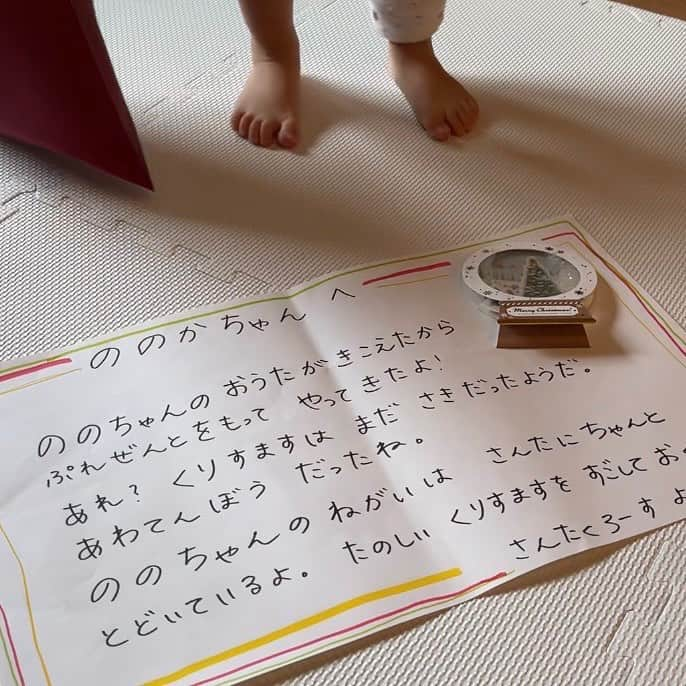 ののかちゃん へ
ののちゃんの おうたが きこえたから
ぷれぜんとをもって やって きたよ!
あれ? くりすますは まだ さきだったようだ。
あわてんぼう だったね。
ののちゃんの ねがいは さんたにちゃんと
とどいているよ。 たのしい くりすますを すごして お
さんたくろーす よ
Merry Christmas!